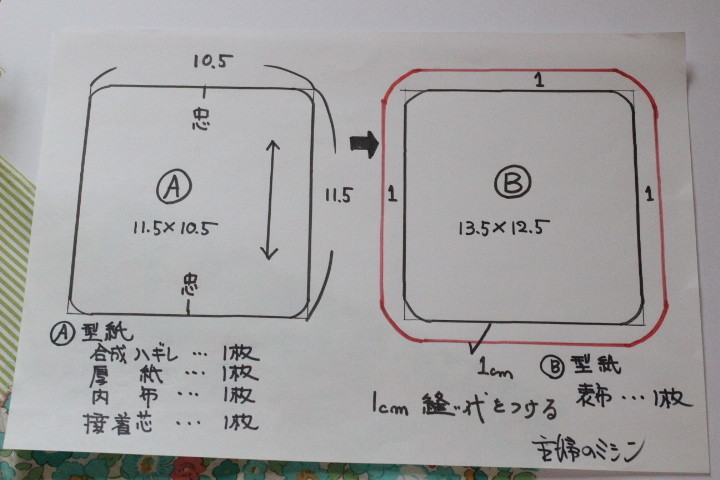 10.5
忠
Ⓐ
11.5×10.5
11.5
忠
1
1
Ⓑ
1
13.5×12.5
1cm
Ⓐ 型紙
合成ハギレ … 1枚
厚紙 … 1枚
内布 … 1枚
接着芯 … 1枚
Ⓑ 型紙
表布 … 1枚
1cm 縫い代をつける
主婦のミシン